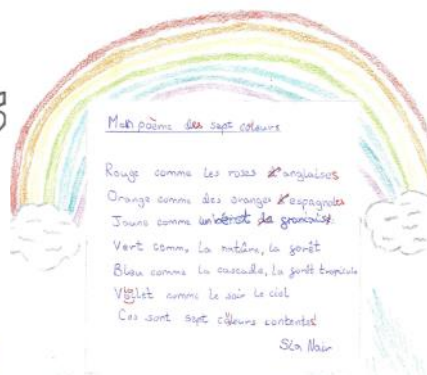 Mon poème des sept couleurs
Rouge comme les roses anglaises
Orange comme des oranges espagnoles
Jaune comme
Vert comm, la nature, la forêt
Bleu comme la cascade, la forêt tropicale
Violet comme le soir le ciel
Ces sont sept couleurs contentes